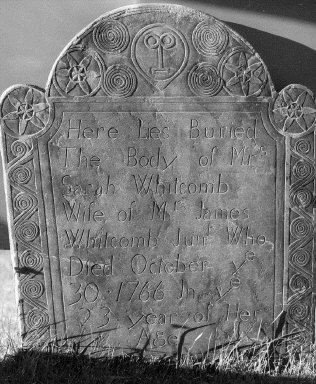 Here Les Buried
The Body of Mrs
Sarah Whitcomb
Wife of Mr James
Whitcomb Junr Who
Died October ye
30, 1766 In ye
23 year of Her
Age